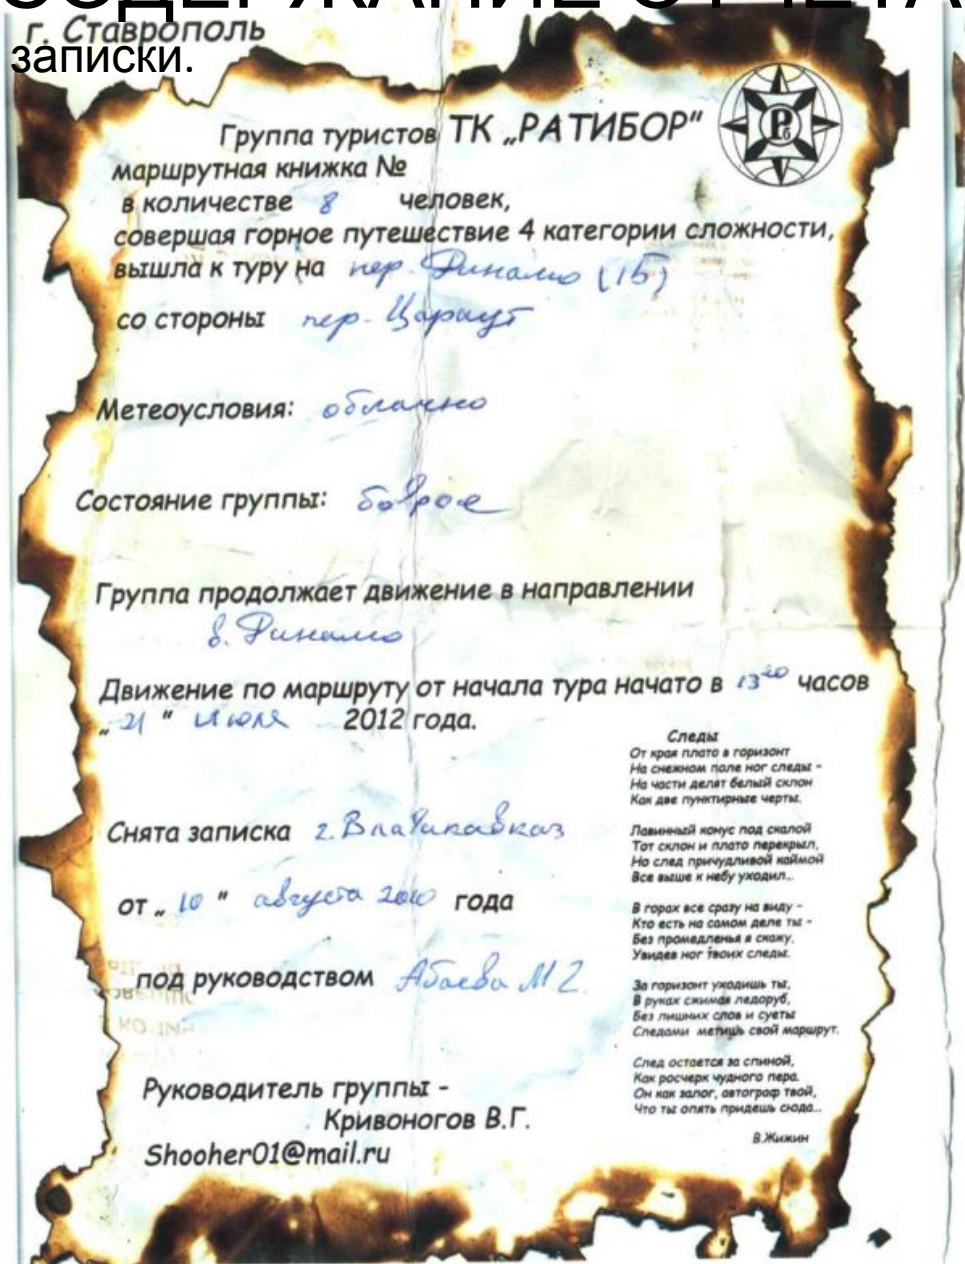 СОДЕРЖАНИЕ ОТЧЕТА
г. Ставрополь
записки.
Группа туристов ТК „РАТИБОР"
Рб
маршрутная книжка №
в количестве 8 человек,
совершая горное путешествие 4 категории сложности,
вышла к туру на пер. Динамо (1Б)
со стороны пер. Цараут
Метеоусловия: облачно
Состояние группы: бодрое
Группа продолжает движение в направлении
в. Динамо
Движение по маршруту от начала тура начато в 13²⁰ часов
„ 21 " июля 2012 года.
Снята записка г. Владикавказ
от „ 10 " августа 2010 года
под руководством Абаева М
Руководитель группы -
Кривоногов В.Г.
Shooher01@mail.ru
Следы
От края плато в горизонт
На снежном поле ног следы -
На части делят белый склон
Как две пунктирные черты.
Лавинный конус под скалой
Тот склон и плато перекрыл,
Но след причудливой каймой
Все выше к небу уходил...
В горах все сразу на виду -
Кто есть на самом деле ты -
Без промедленья я скажу,
Увидев ног твоих следы.
За горизонт уходишь ты,
В руках сжимая ледоруб,
Без лишних слов и суеты
Следами метишь свой маршрут.
След остается за спиной,
Как росчерк чудного пера.
Он как залог, автограф твой,
Что ты опять придешь сюда...
В.Жижин